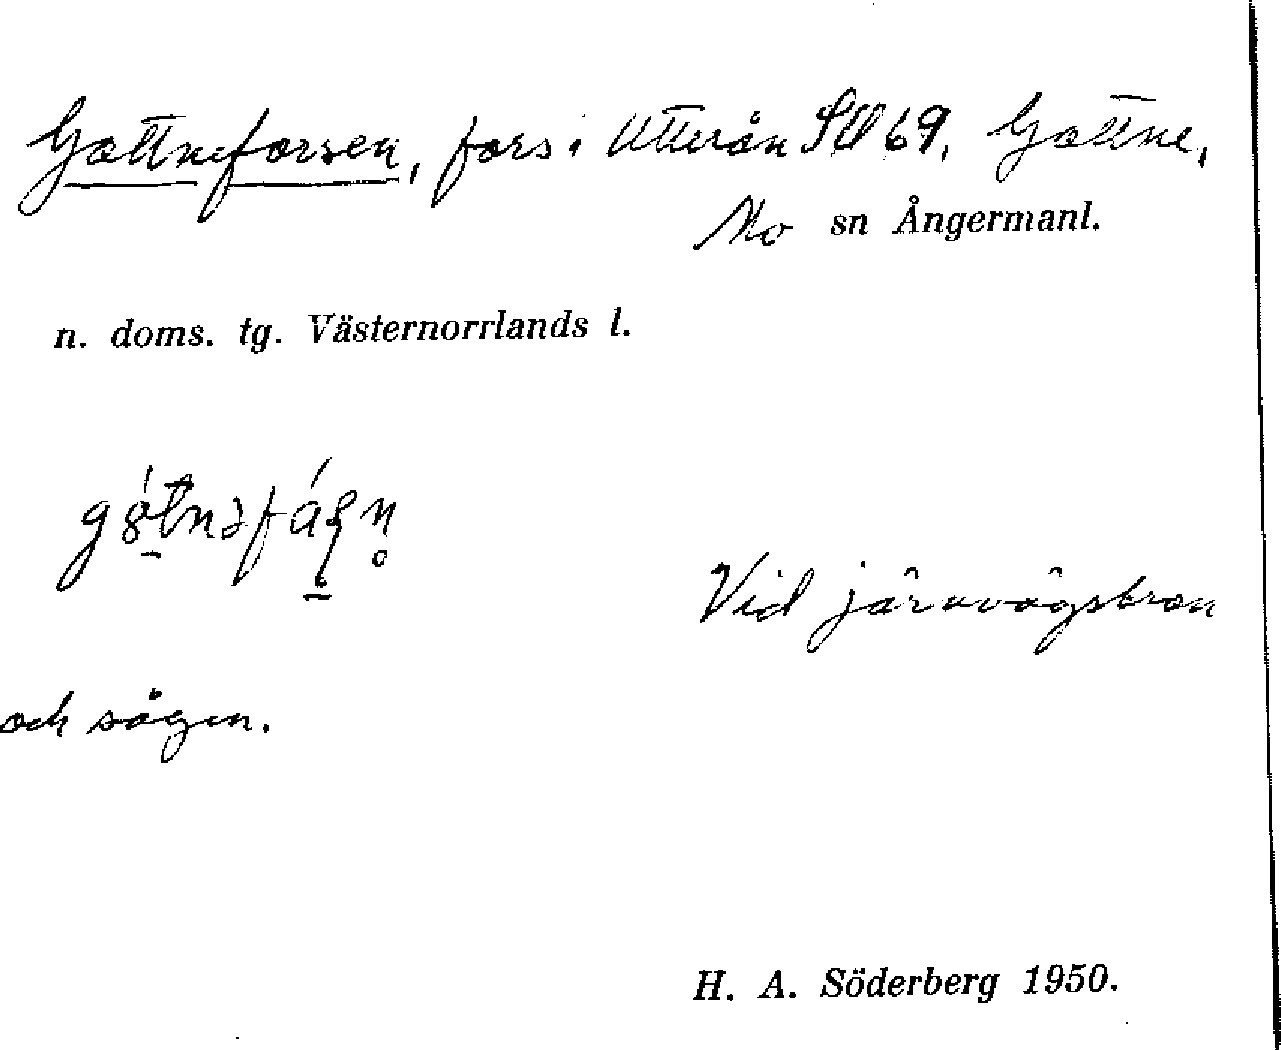 Gottneforsen, fors i Utterån SO 69, Gottne,
Mo sn Ångermanl.
n. doms. tg. Västernorrlands l.
Vid järnvägsbron
och sågen.
H. A. Söderberg 1950.